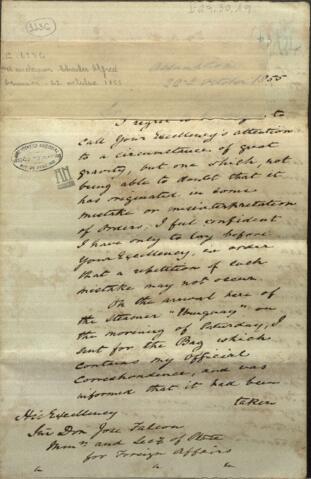 I-29,30,19
Asuncion
22d October 1855
I regret to
call Your Excellency's attention
to a circumstance of great
gravity, but one which, not
being able to doubt that it
has originated in some
mistake or misinterpretation
of Orders, I feel confident
I have only to lay before
Your Excellency, in order
that a repetition of such
mistake may not occur.
On the arrival here of
the Steamer "Uruguay" on
the morning of Saturday, I
sent for the Bag which
contains my Official
Correspondence, and was
informed that it had been
taken
His Excellency
Sor Don José Falcon
Minr and Secy of State
for Foreign Affairs